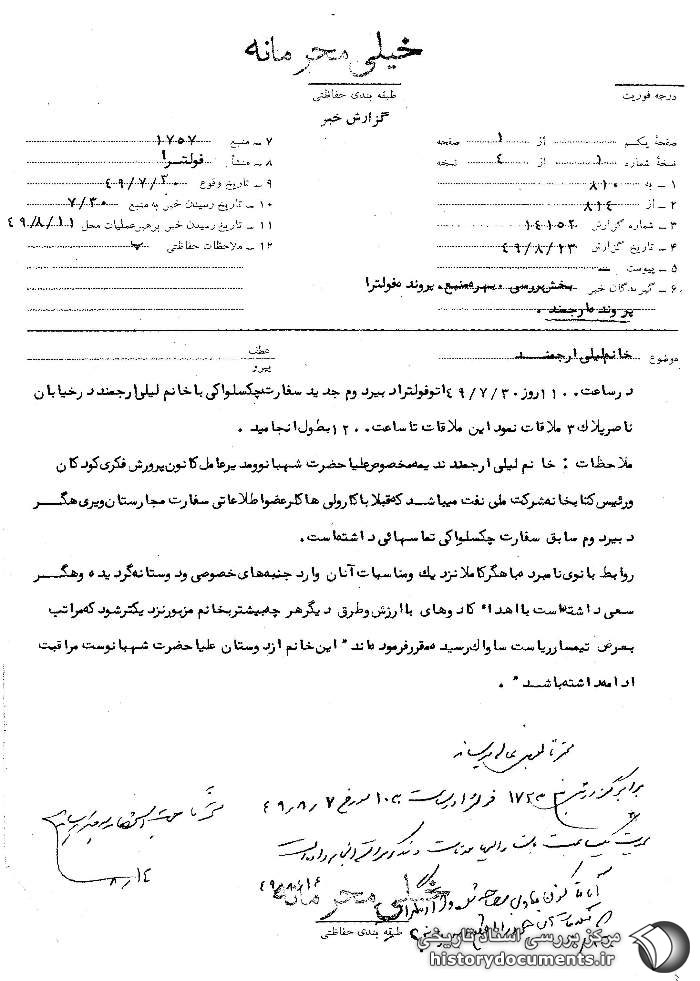 خیلی محرمانه
طبقه بندی حفاظتی
درجه فوریت
گزارش خبر
صفحهٔ یکم از ۱ صفحه
نسخهٔ شماره ۱ از ۴ نسخه
۱ ـ به ۸۱۰
۲ ـ از ۸۱۴
۳ ـ شماره گزارش ۱۴۱۵۲
۴ ـ تاریخ گزارش ۴۹/۸/۱۳
۵ ـ پیوست ـ
۶ ـ گیرندگان خبر بخش بررسی ، بهره منبع ، پرونده فولترا
پرونده ارجمند .
۷ ـ منبع ۱۷۵۷
۸ ـ منشأ فولترا
۹ ـ تاریخ وقوع ۴۹/۷/۳۰
۱۰ ـ تاریخ رسیدن خبر به منبع ۷/۳۰
۱۱ ـ تاریخ رسیدن خبر برهبر عملیات محل ۴۹/۸/۱۱
۱۲ ـ ملاحظات حفاظتی
موضوع خانم لیلی ارجمند
عطف
پیرو
در ساعت ۱۱۰۰ روز ۴۹/۷/۳۰ اتوفولترا دبیر دوم جدید سفارت چکسلواکی با خانم لیلی ارجمند در خیابان
ناصر پلاک ۳ ملاقات نمود این ملاقات تا ساعت ۱۲۰۰ بطول انجامید .
ملاحظات : خانم لیلی ارجمند ندیمه مخصوص علیا حضرت شهبانو و مدیر عامل کانون پرورش فکری کودکان
و رئیس کتابخانه شرکت ملی نفت میباشد که قبلا با کارولی هاکلر عضو اطلاعاتی سفارت مجارستان و یری هگر
دبیر دوم سابق سفارت چکسلواکی تماسهائی داشته است .
روابط بانوی نامبرده با هگر کاملا نزدیک و مناسبات آنان وارد جنبه های خصوصی و دوستانه گردیده و هگر
سعی داشته است با اهداء کادوهای با ارزش و طرق دیگر هر چه بیشتر بخانم مزبور نزدیکتر شود که مراتب
بعرض تیمسار ریاست ساواک رسیده مقرر فرموده اند " این خانم از دوستان علیا حضرت شهبانوست مراقبت
ادامه داشته باشد " .
برابر گزارش ۱۷۲۳ فولترا در ساعت ۱۰۲۰ مورخ ۴۹/۸/۷
۸/۱۴
خیلی محرمانه
طبقه بندی حفاظتی
مرکز بررسی اسناد تاریخی
historydocuments.ir